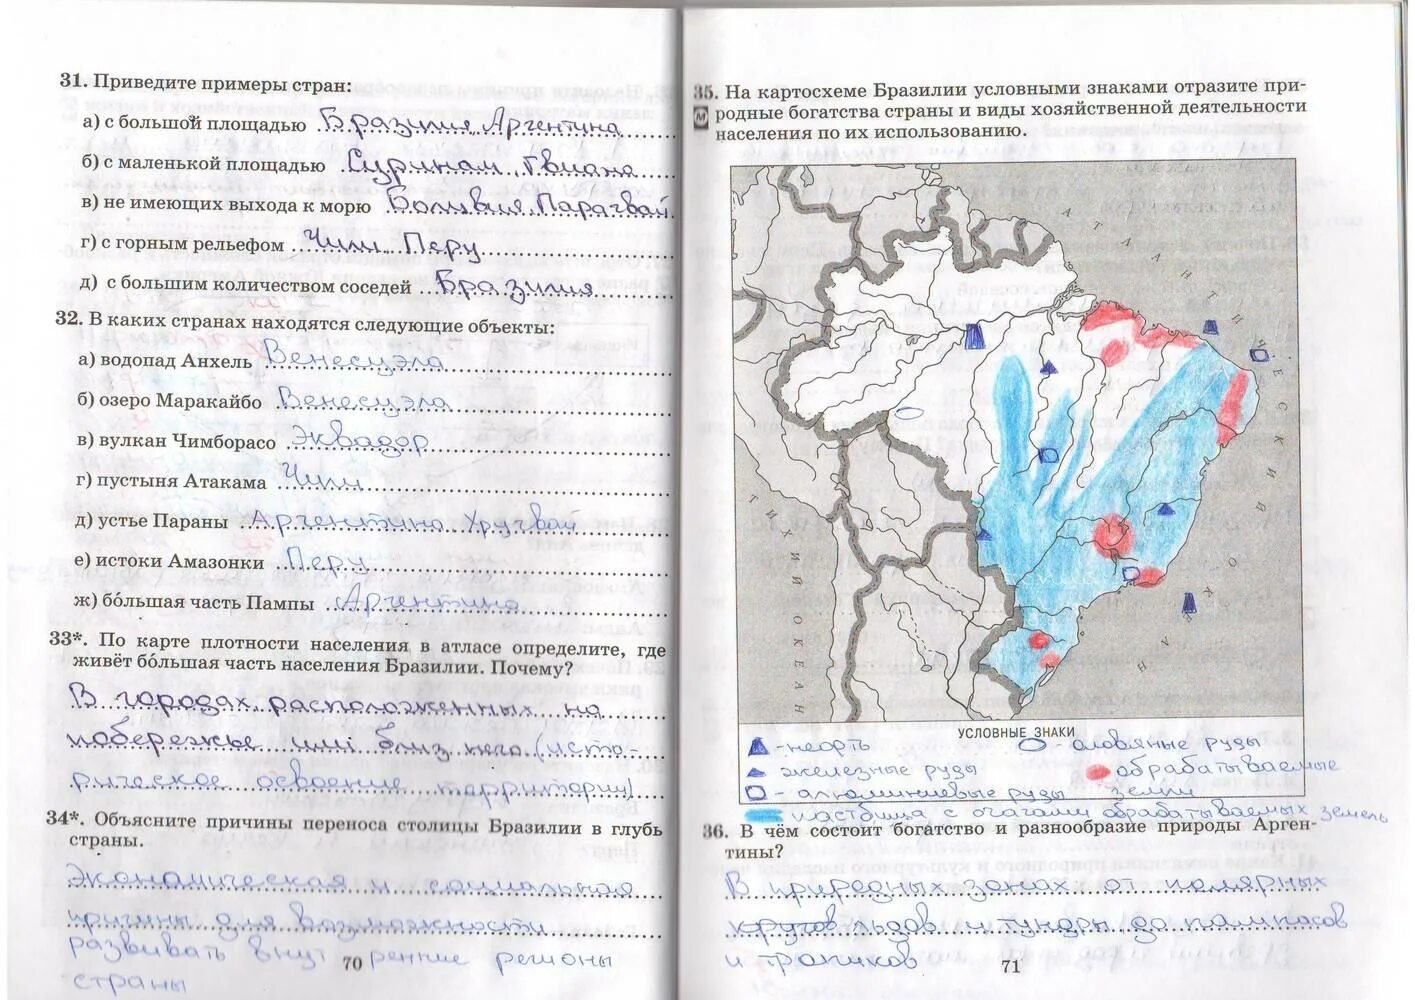 31. Приведите примеры стран:
а) с большой площадью Бразилия Аргентина
б) с маленькой площадью Суринам Гвиана
в) не имеющих выхода к морю Боливия Парагвай
г) с горным рельефом Чили Перу
д) с большим количеством соседей Бразилия
32. В каких странах находятся следующие объекты:
а) водопад Анхель Венесуэла
б) озеро Маракайбо Венесуэла
в) вулкан Чимборасо Эквадор
г) пустыня Атакама Чили
д) устье Параны Аргентина
е) истоки Амазонки Перу
ж) бо́льшая часть Пампы Аргентина
33*. По карте плотности населения в атласе определите, где
живёт бо́льшая часть населения Бразилии. Почему?
В городах расположенных на
побережье или близ него (исто-
рическое освоение территории)
34*. Объясните причины переноса столицы Бразилии в глубь
страны.
Экономическая и социальная
причины для возможности
развивать внут ренние регионы
страны
70
35. На картосхеме Бразилии условными знаками отразите при-
М
родные богатства страны и виды хозяйственной деятельности
населения по их использованию.
АТЛАНТИЧЕСКИЙ ОКЕАН
ТИХИЙ ОКЕАН
УСЛОВНЫЕ ЗНАКИ
- нефть - оловяные руды
- железные руды - обрабатываемые
- алюминиевые руды земли
- пастбища с очагами обрабатываемых земель
36. В чём состоит богатство и разнообразие природы Арген-
тины?
В природных зонах от полярных
льдов и тундры до пампасов
и тропиков
71